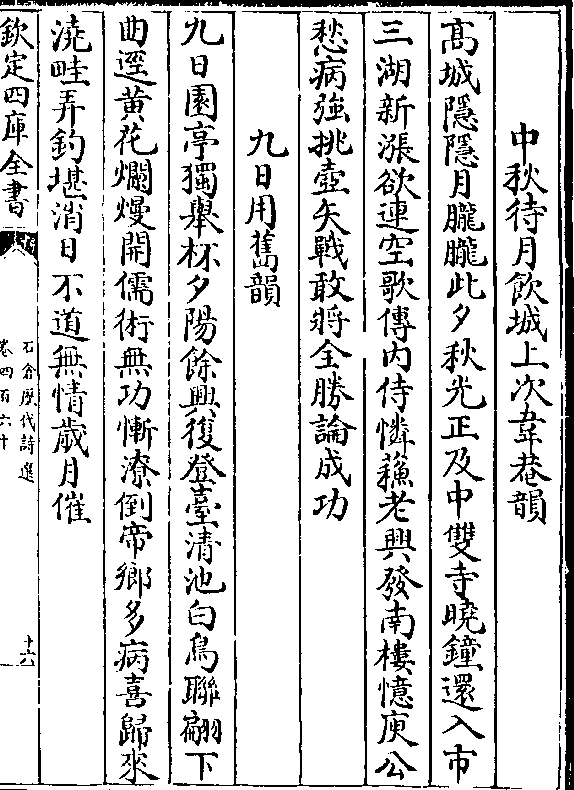 中秋待月飲城上次韋菴韻
髙城隱隱月朧朧此夕秋光正及中雙寺曉鐘還入市
三湖新漲欲連空歌傳内侍憐蘓老興發南樓憶庾公
愁病強挑壺矢戰敢將全勝論成功
九日用舊韻
九日園亭獨舉杯夕陽餘興復登臺清池白鳥聯翩下
曲逕黄花爛熳開儒術無功慚潦倒帝鄉多病喜歸來
澆畦弄釣堪消日不道無情歳月催
欽定四庫全書
石倉歴代詩選
卷四百六十
十六